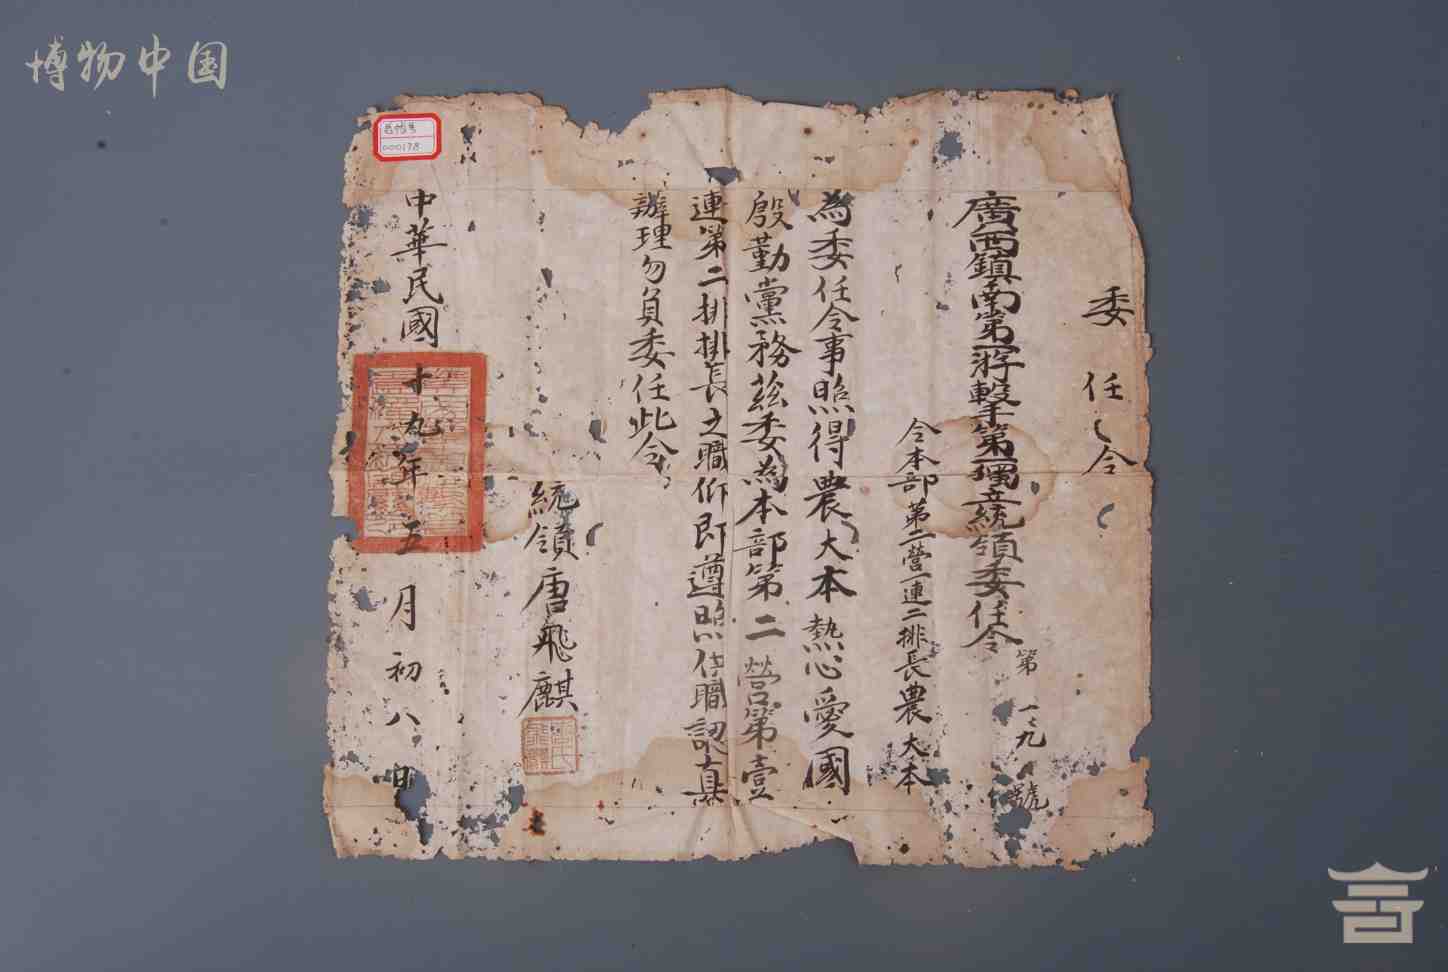 博物中国
总账号
000178
委任令
廣西鎮南第一游擊手第一獨立統領委任令
第一九號
令本部第二營一連二排長農大本
為委任令事照得農大本熱心愛國
殷勤黨務茲委為本部第二營第壹
連第二排排長之職仰即遵照任職認真
辦理勿負委任此令
統領唐飛麒
中華民國十九年五月初八日